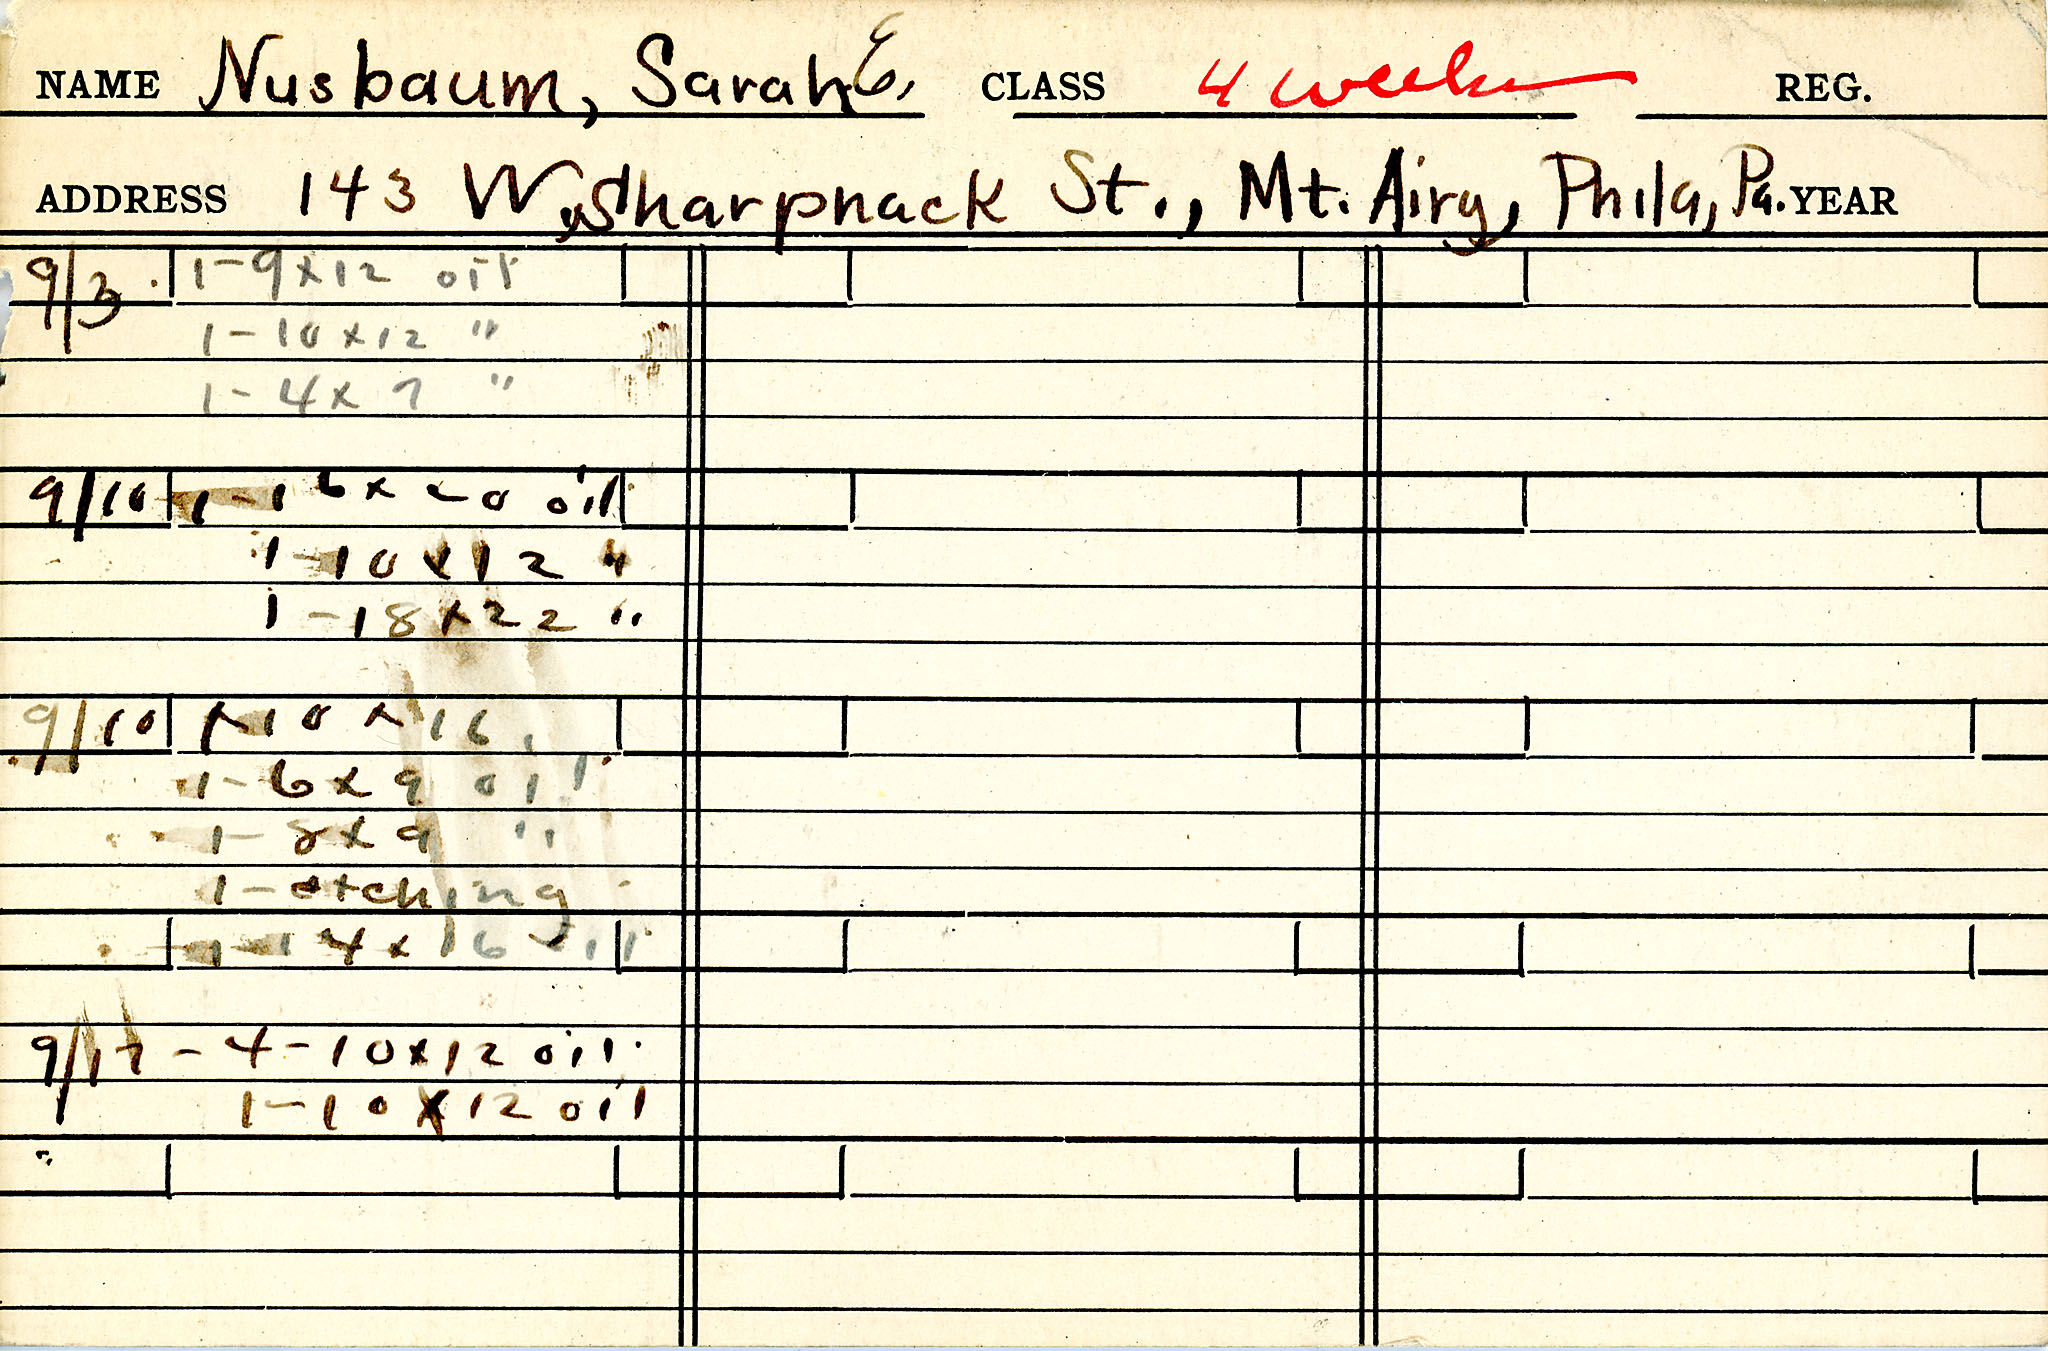 NAME Nusbaum, Sarah E. CLASS 4 weeks REG.
ADDRESS 143 W. Sharpnack St., Mt. Airy, Phila, Pa. YEAR
9/3 1-9x12 oil
1-10x12 "
1-4x7 "
9/10 1-16x20 oil
1-10x12 "
1-18x22 "
9/10 1-10x16
1-6x9 oil
1-8x9 "
1-etching
1-14x16 oil
9/17 - 4-10x12 oil
1-10x12 oil
"